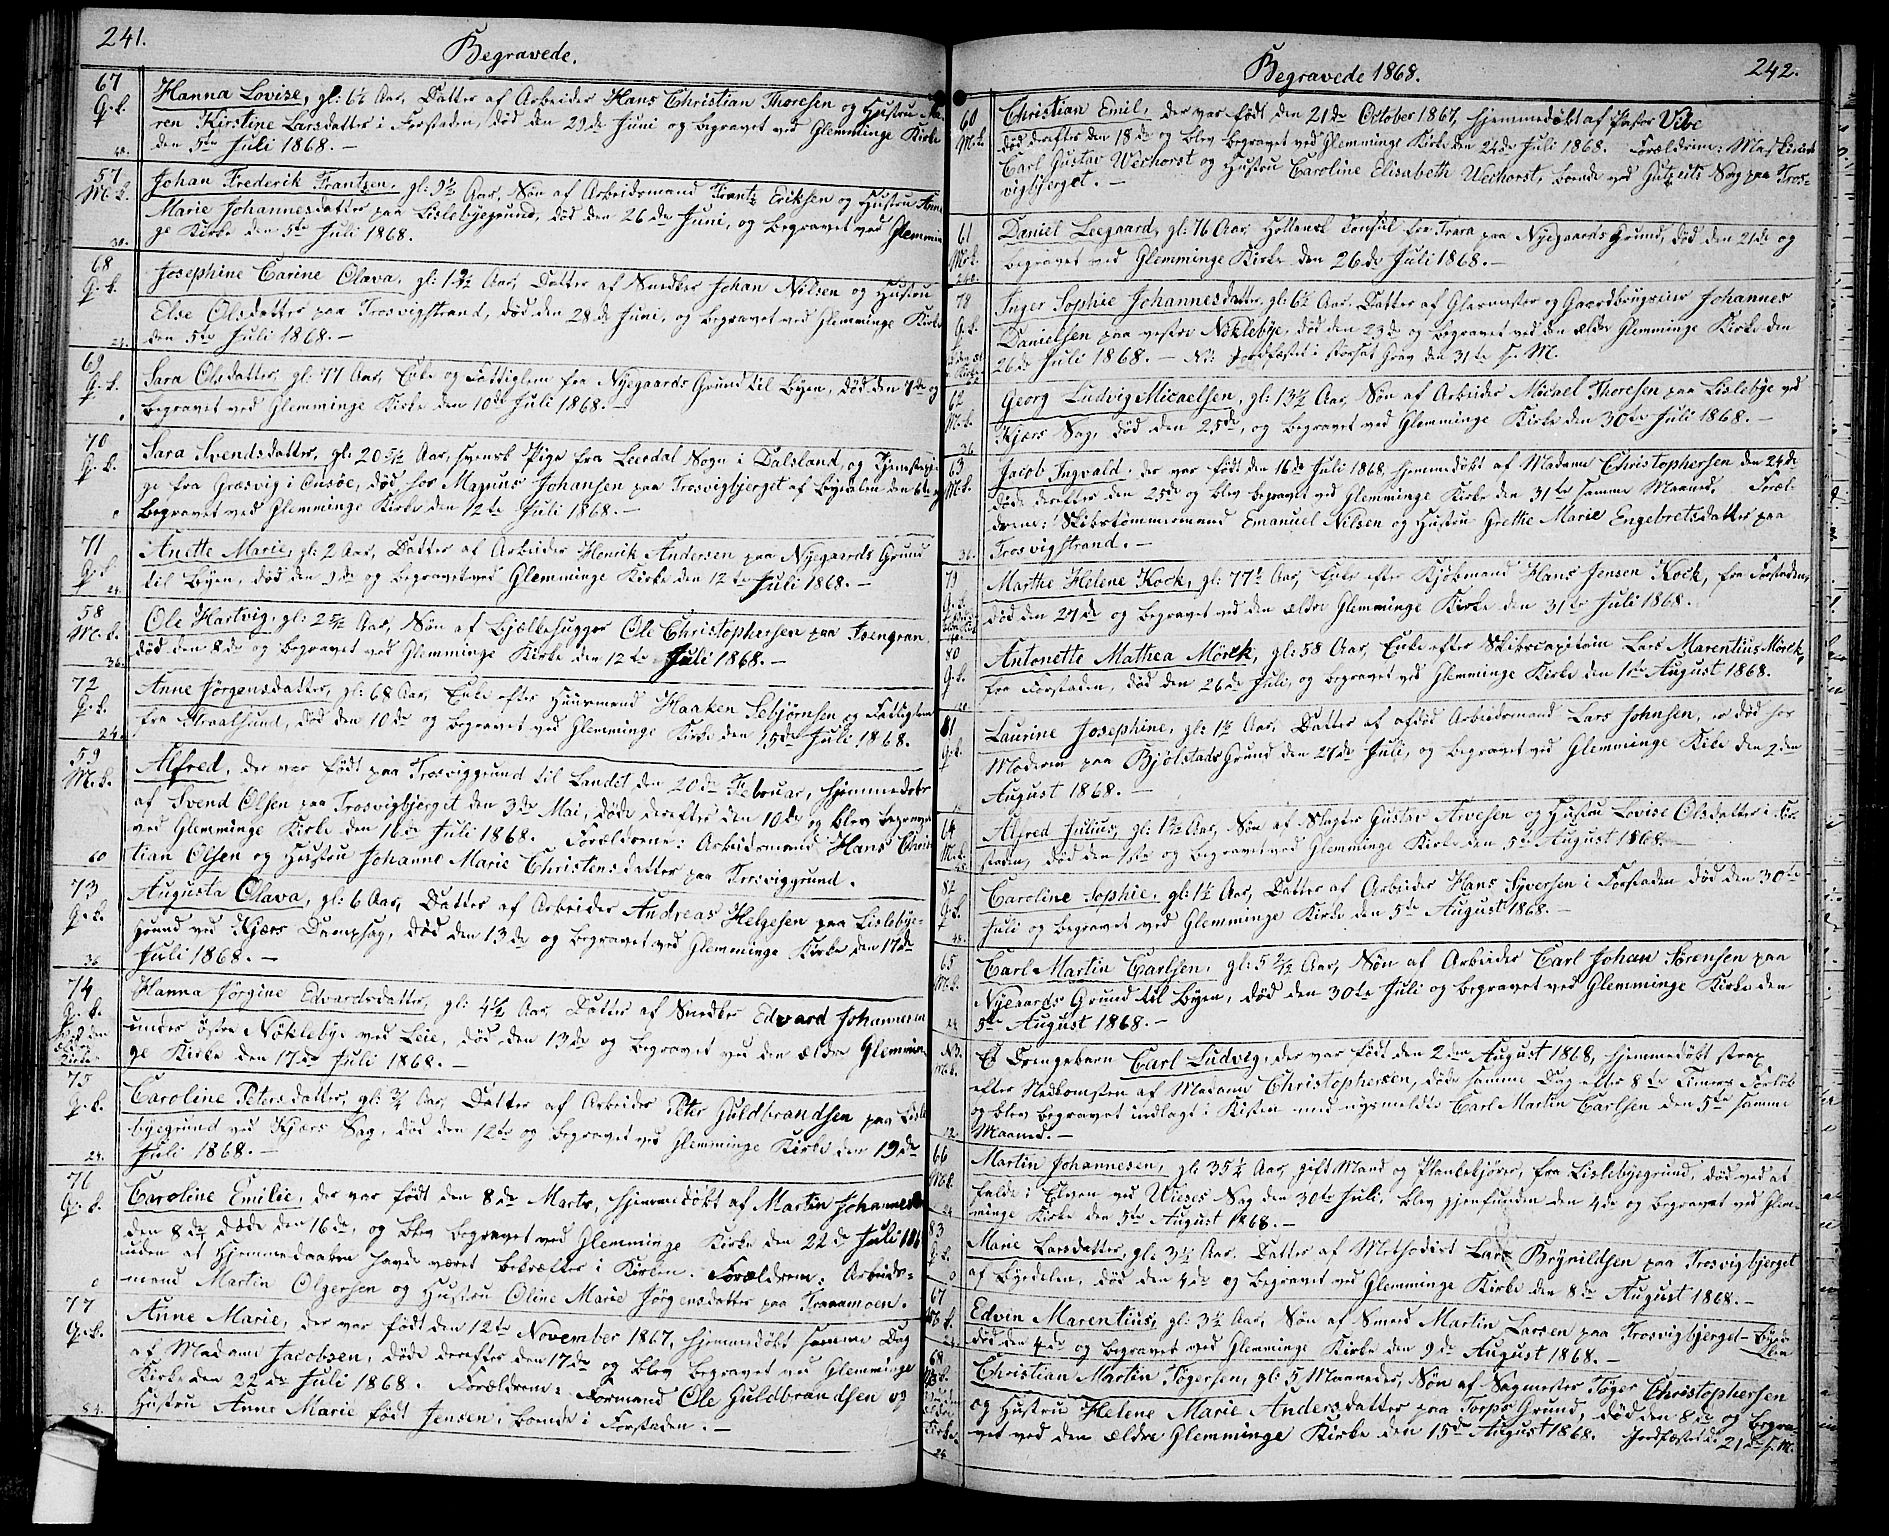 241.
Begravede.
67 Hanna Lovise, gl: 6½ Aar, Datter af Arbeider Hans Christian Thoresen og Hustru Ma-
Q.k. ren Kirstine Larsdatter i Forstaden, død den 29de Juni og begravet ved Glemminge Kirke
48. den 5te Juli 1868. –
57 Johan Frederik Frantzen, gl: 9½ Aar, Søn af Arbeidsmand Frantz Eriksen og Hustru Anne
M.k. Marie Johannesdatter paa Lislebyegrund, død den 26de Juni, og begravet ved Glemmin-
30. ge Kirke den 5te Juli 1868.
68 Josephine Carine Olava, gl: Aar, Datter af Snedker Johan Nilsen og Hustru
Q.k. Else Olsdatter paa Trosvigstrand, død den 28de Juni, og begravet ved Glemminge Kirke
24. den 5te Juli 1868. –
69 Sara Olsdatter, gl: 77 Aar, Enke og Fattiglem fra Nyegaards Grund til Byen, død den 7de og
Q.k. begravet ved Glemminge Kirke den 10de Juli 1868. –
70 Sara Svendsdatter, gl: 20 5/12 Aar, svensk Pige fra Leerdal Sogn i Dalsland, og Tjenestepi-
Q.k. ge fra Græsvig i Onsøe, død hos Magnus Johansen paa Trosvigbjerget af Byedelen den 6te og
begravet ved Glemminge Kirke den 12te Juli 1868. –
71 Anette Marie, gl: 2 Aar, Datter af Arbeider Henrik Andersen paa Nyegaards Grund
Q.k. til Byen, død den 9de og begravet ved Glemminge Kirke den 12te Juli 1868. –
24.
58 Ole Hartvig, gl: 2 5/12 Aar, Søn af Bjelkehugger Ole Christophersen paa Isengran
M.k. død den 8de og begravet ved Glemminge Kirke den 12te Juli 1868. –
36.
72 Anne Jørgensdatter, gl: 68 Aar, Enke efter Huusmand Haaken Sebjørnsen og Fattiglem
Q.k. fra, død den 10de og begravet ved Glemminge Kirke den 15de Juli 1868.
24.
59 Alfred, der var født paa Trosviggrund til Landet den 20de Februar, hjemmedøbt
M.k. af Svend Olsen paa Trosvigbjerget den 3de Mai, døde derefter den 10de og blev begravet
ved Glemminge Kirke den 16de Juli 1868. Forældrene: Arbeidsmand Hans Chris-
60 tian Olsen og Hustru Johanne Marie Christensdatter paa Trosviggrund.
73 Augusta Olava, gl: 6 Aar, Datter af Arbeider Andreas Helgesen paa Lislebye-
Q.k. grund ved Kjærs Dampsag, død den 13de og begravet ved Glemminge Kirke den 17de
36 Juli 1868. –
74 Hanna Jørgine Edvardsdatter, gl: 4½ Aar, Datter af Snedker Edvard Johannesen
Q.k. under østre Nøklebye ved Leie, død den 13de og begravet ved den ældre Glemmin-
ge Kirke den 17de Juli 1868. –
75 Caroline Petersdatter, gl: ¾ Aar, Datter af Arbeider Peter Guldbrandsen paa Lisle-
Q.k. byegrund ved Kjærs Sag, død den 12te og begravet ved Glemminge Kirke den 19de
24. Juli 1868. –
76 Caroline Emilie, der var født den 8de Marts, hjemmedøbt af Martin Johannesen
Q.k. den 8de, døde den 16de, og blev begravet ved Glemminge Kirke den 22de Juli 1868
uden at Hjemmedaaben havde været bekræftet i Kirken. Forældrene: Arbeids-
mand Martin Olgersen og Hustru Oline Marie Jørgensdatter paa Traramoen.
77 Anne Marie, der var født den 12te November 1867, hjemmedøbt samme Dag
Q.k. af Madame Jacobsen, døde derefter den 17de og blev begravet ved Glemminge
Kirke den 22de Juli 1868. Forældrene: Formand Ole Guldbrandsen og
84. Hustru Anne Marie født Jensen, boende i Forstaden. –
Begravede 1868.
242.
60 Christian Emil, der var født den 21de October 1867, hjemmedøbt af Pastor Vibe
M.k. død derefter den 18de og blev begravet ved Glemminge Kirke den 24de Juli 1868. Forældrene: Maskinist
Carl Gustav Wechorst og Hustru Caroline Elisabeth Wechorst, boende ved Gutzeits Sag paa Tros-
vigbjerget. –
61 Daniel Leegaard, gl: 76 Aar, Hollensk Consul fra Trara paa Nyegaards Grund, død den 21de og
M.k. begravet ved Glemminge Kirke den 26de Juli 1868. –
240.
78 Inger Sophie Johannesdatter, gl: 6½ Aar, Datter af Glarmester og Gaardbruger Johannes
Q.k. Danielsen paa vestre Nøklebye, død den 23de og begravet ved den ældre Glemminge Kirke den
26de Juli 1868. – Jordfæstet den 31te s. M.
62 Georg Ludvig Micaelsen, gl: 13½ Aar, Søn af Arbeider Micael Thoresen paa Lislebye ved
M.k. Kjærs Sag, død den 25de, og begravet ved Glemminge Kirke den 30te Juli 1868. –
36
63 Jacob Ingvald, der var født den 16de Juli 1868, hjemmedøbt af Madame Christophersen den 24de
M.k. døde derefter den 25de og blev begravet ved Glemminge Kirke den 31te samme Maaned. Foræl-
drene: Skibstømmermand Emanuel Nilsen og Hustru Grethe Marie Engebretsdatter paa
36. Trosvigstrand. –
79 Marthe Helene Kock, gl: 77½ Aar, Enke efter Kjøbmand Hans Jensen Kock, fra Forstaden,
Q.k. død den 27de og begravet ved den ældre Glemminge Kirke den 31te Juli 1868.
80 Antonette Mathea Mörck, gl: 58 Aar, Enke efter Skibscapitain Lars Marentius Mörck,
Q.k. fra Forstaden, død den 26de Juli, og begravet ved Glemminge Kirke den 1ste August 1868.
81 Laurine Josephine, gl: 1½ Aar, Datter af afdød Arbeidsmand Lars Johnsen, er død hos
Q.k. Moderen paa Bjølstads Grund den 27de Juli, og begravet ved Glemminge Kirke den 2den
August 1868. –
64 Alfred Julius, gl: Aar, Søn af Slagter Gustav Arvesen og Hustru Lovise Olsdatter i For-
M.k. staden, død den 1ste og begravet ved Glemminge Kirke den 5te August 1868. –
82 Caroline Sophie, gl: 1½ Aar, Datter af Arbeider Hans Syversen i Forstaden død den 30te
Q.k. Juli og begravet ved Glemminge Kirke den 5te August 1868. –
48.
65 Carl Martin Carlsen, gl: 5 2/12 Aar, Søn af Arbeider Carl Johan Sørensen paa
M.k. Nyegaards Grund til Byen, død den 30te Juli og begravet ved Glemminge Kirke den
24 5te August 1868. –
M.k. Et Drengebarn Carl Ludvig, der var født den 2den August 1868, hjemmedøbt strax
efter Nedkomsten af Madame Christophersen, døde samme Dag efter 8te Timers Forløb
og blev begravet indlagt i Kisten med nysmeldte Carl Martin Carlsen den 5te samme
12. Maaned. –
66 Martin Johannesen, gl: 35½ Aar, gift Mand og Plankekjører, fra Lislebyegrund, død ved at
M.k. falde i Elven ved Wieses Sag den 30te Juli, blev gjenfunden den 4de og begravet ved Glem-
24 minge Kirke den 5te August 1868. –
83 Marie Larsdatter, gl: 3½ Aar, Datter af Methodist Lars Brynildsen paa Trosvigbjerget
Q.k. af Byedelen, død den 4de og begravet ved Glemminge Kirke den 8de August 1868. –
67 Edvin Marentius, gl: 3½ Aar, Søn af Smed Martin Larsen paa Trosvigbjerget – Bye-
M.k. død den 4de og begravet ved Glemminge Kirke den 9de August 1868. – delen
68 Christian Martin Tøgersen, gl: 5 Maaneder, Søn af Sagmester Tøger Christophersen
M.k. og Hustru Helene Marie Andersdatter paa Torps Grund, død den 8de og begra-
vet ved den ældre Glemminge Kirke den 15de August 1868. Jordfæstet d. 21de s. M.
24